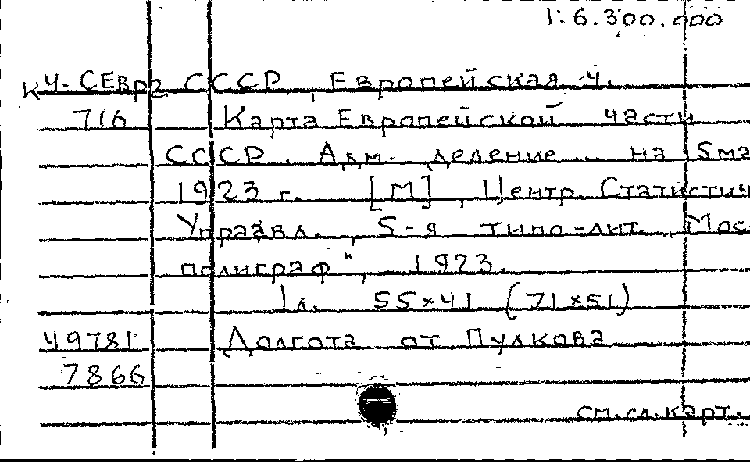 1:6.300.000
К4-СЕвр2 СССР, Европейская ч.
716 Карта Европейской части
СССР. Адм. деление на 5 ма
1923 г. [М], Центр. Статистич
Управл., 5-я типо-лит. „Мос
полиграф", 1923.
1 л. 55×41 (71×51)
49781 Долгота от Пулкова
7866
см.сл.карт.